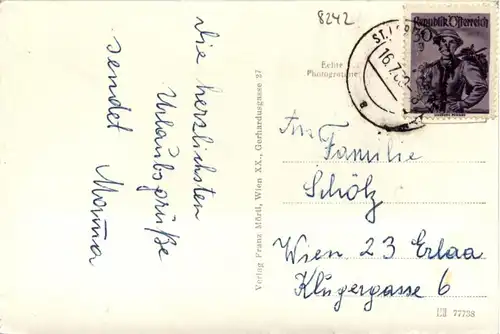 die herzlichsten
Urlaubsgrüße
sendet Mama
8242
Echte
Photographie
Republik Österreich
30 g
ST.
16.7.
Verlag Franz Mörtl, Wien XX., Gerhardusgasse 27
An Familie
Schölz
Wien 23 Erlaa
Klugergasse 6
77738